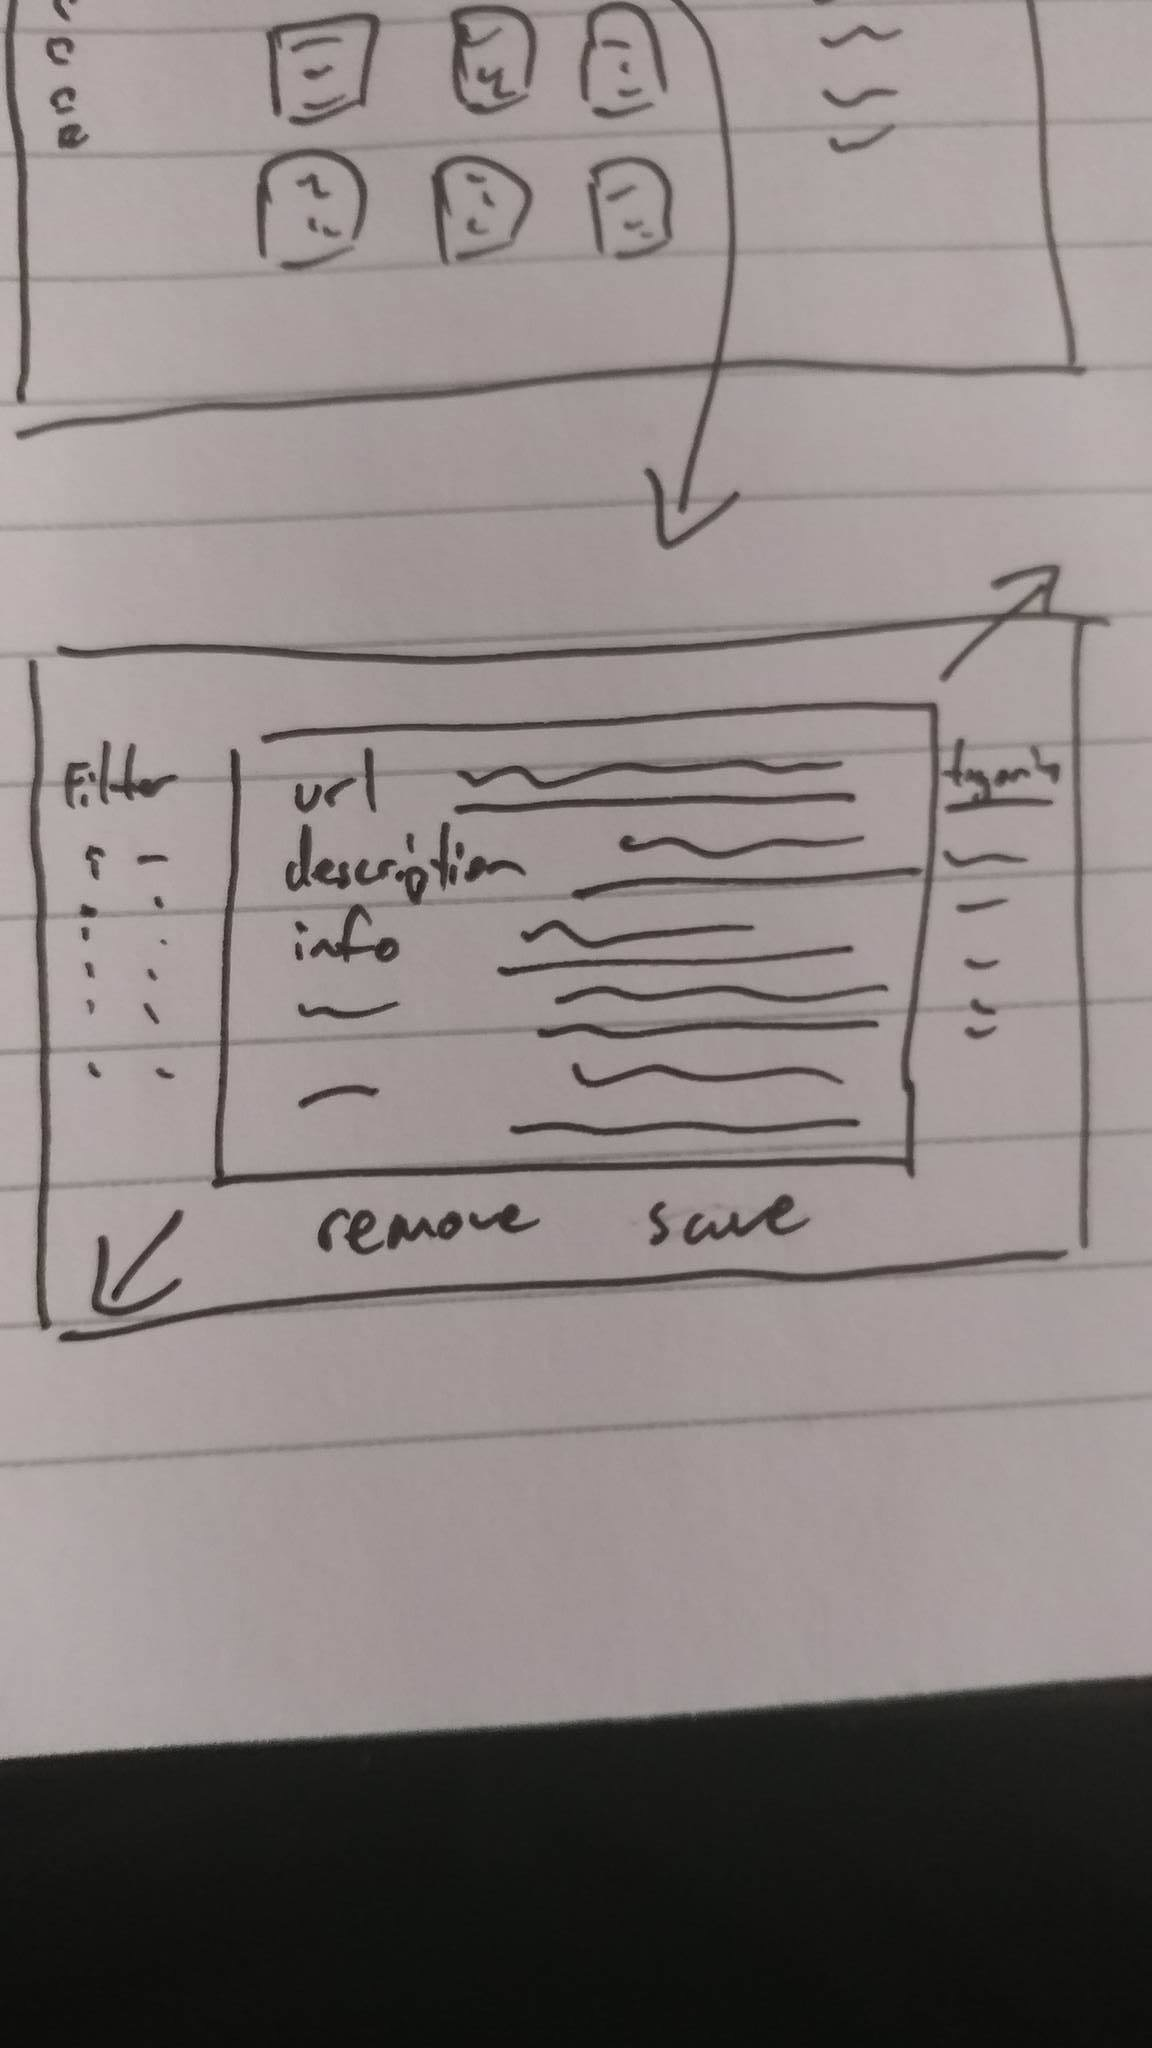 Filter
url
description
info
remove save